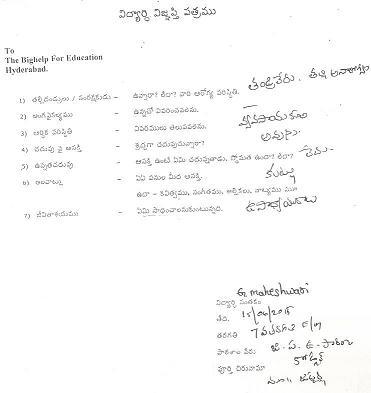 విద్యార్థి విజ్ఞప్తి పత్రము
To
The Bighelp For Education
Hyderabad.
1) తల్లిదండ్రులు / సంరక్షకుడు - ఉన్నారా? లేదా? వారి ఆరోగ్య పరిస్థితి. తండ్రి లేరు. తల్లి
2) అంగవైకల్యము - ఉన్నచో వివరించవలెను.
3) ఆర్థిక పరిస్థితి - వివరములు తెలుపవలెను. వ్యవసాయకూలి
4) చదువు పై ఆసక్తి - శ్రద్ధగా చదువుచున్నారా? అవును
5) ఉన్నతచదువు - ఆసక్తి ఉంటే ఏమి చదువుతాడు, స్తోమత ఉందా? లేదా? లేదు-
6) అలవాట్లు - ఏఏ పనుల మీద ఆసక్తి. కుట్లు
ఉదా - కవిత్వము, సంగీతము, అల్లికలు, నాట్యము మొ
7) జీవితాశయము - ఏమి సాధించాలనుకుంటున్నది. ఉపాధ్యాయురాలు
G. maheshwari
విద్యార్థి సంతకం
తేది. 15/06/2015
తరగతి 7వ తరగతి E/M
పాఠశాల పేరు జి. ప. ఉ. పాఠశాల
పూర్తి చిరునామా